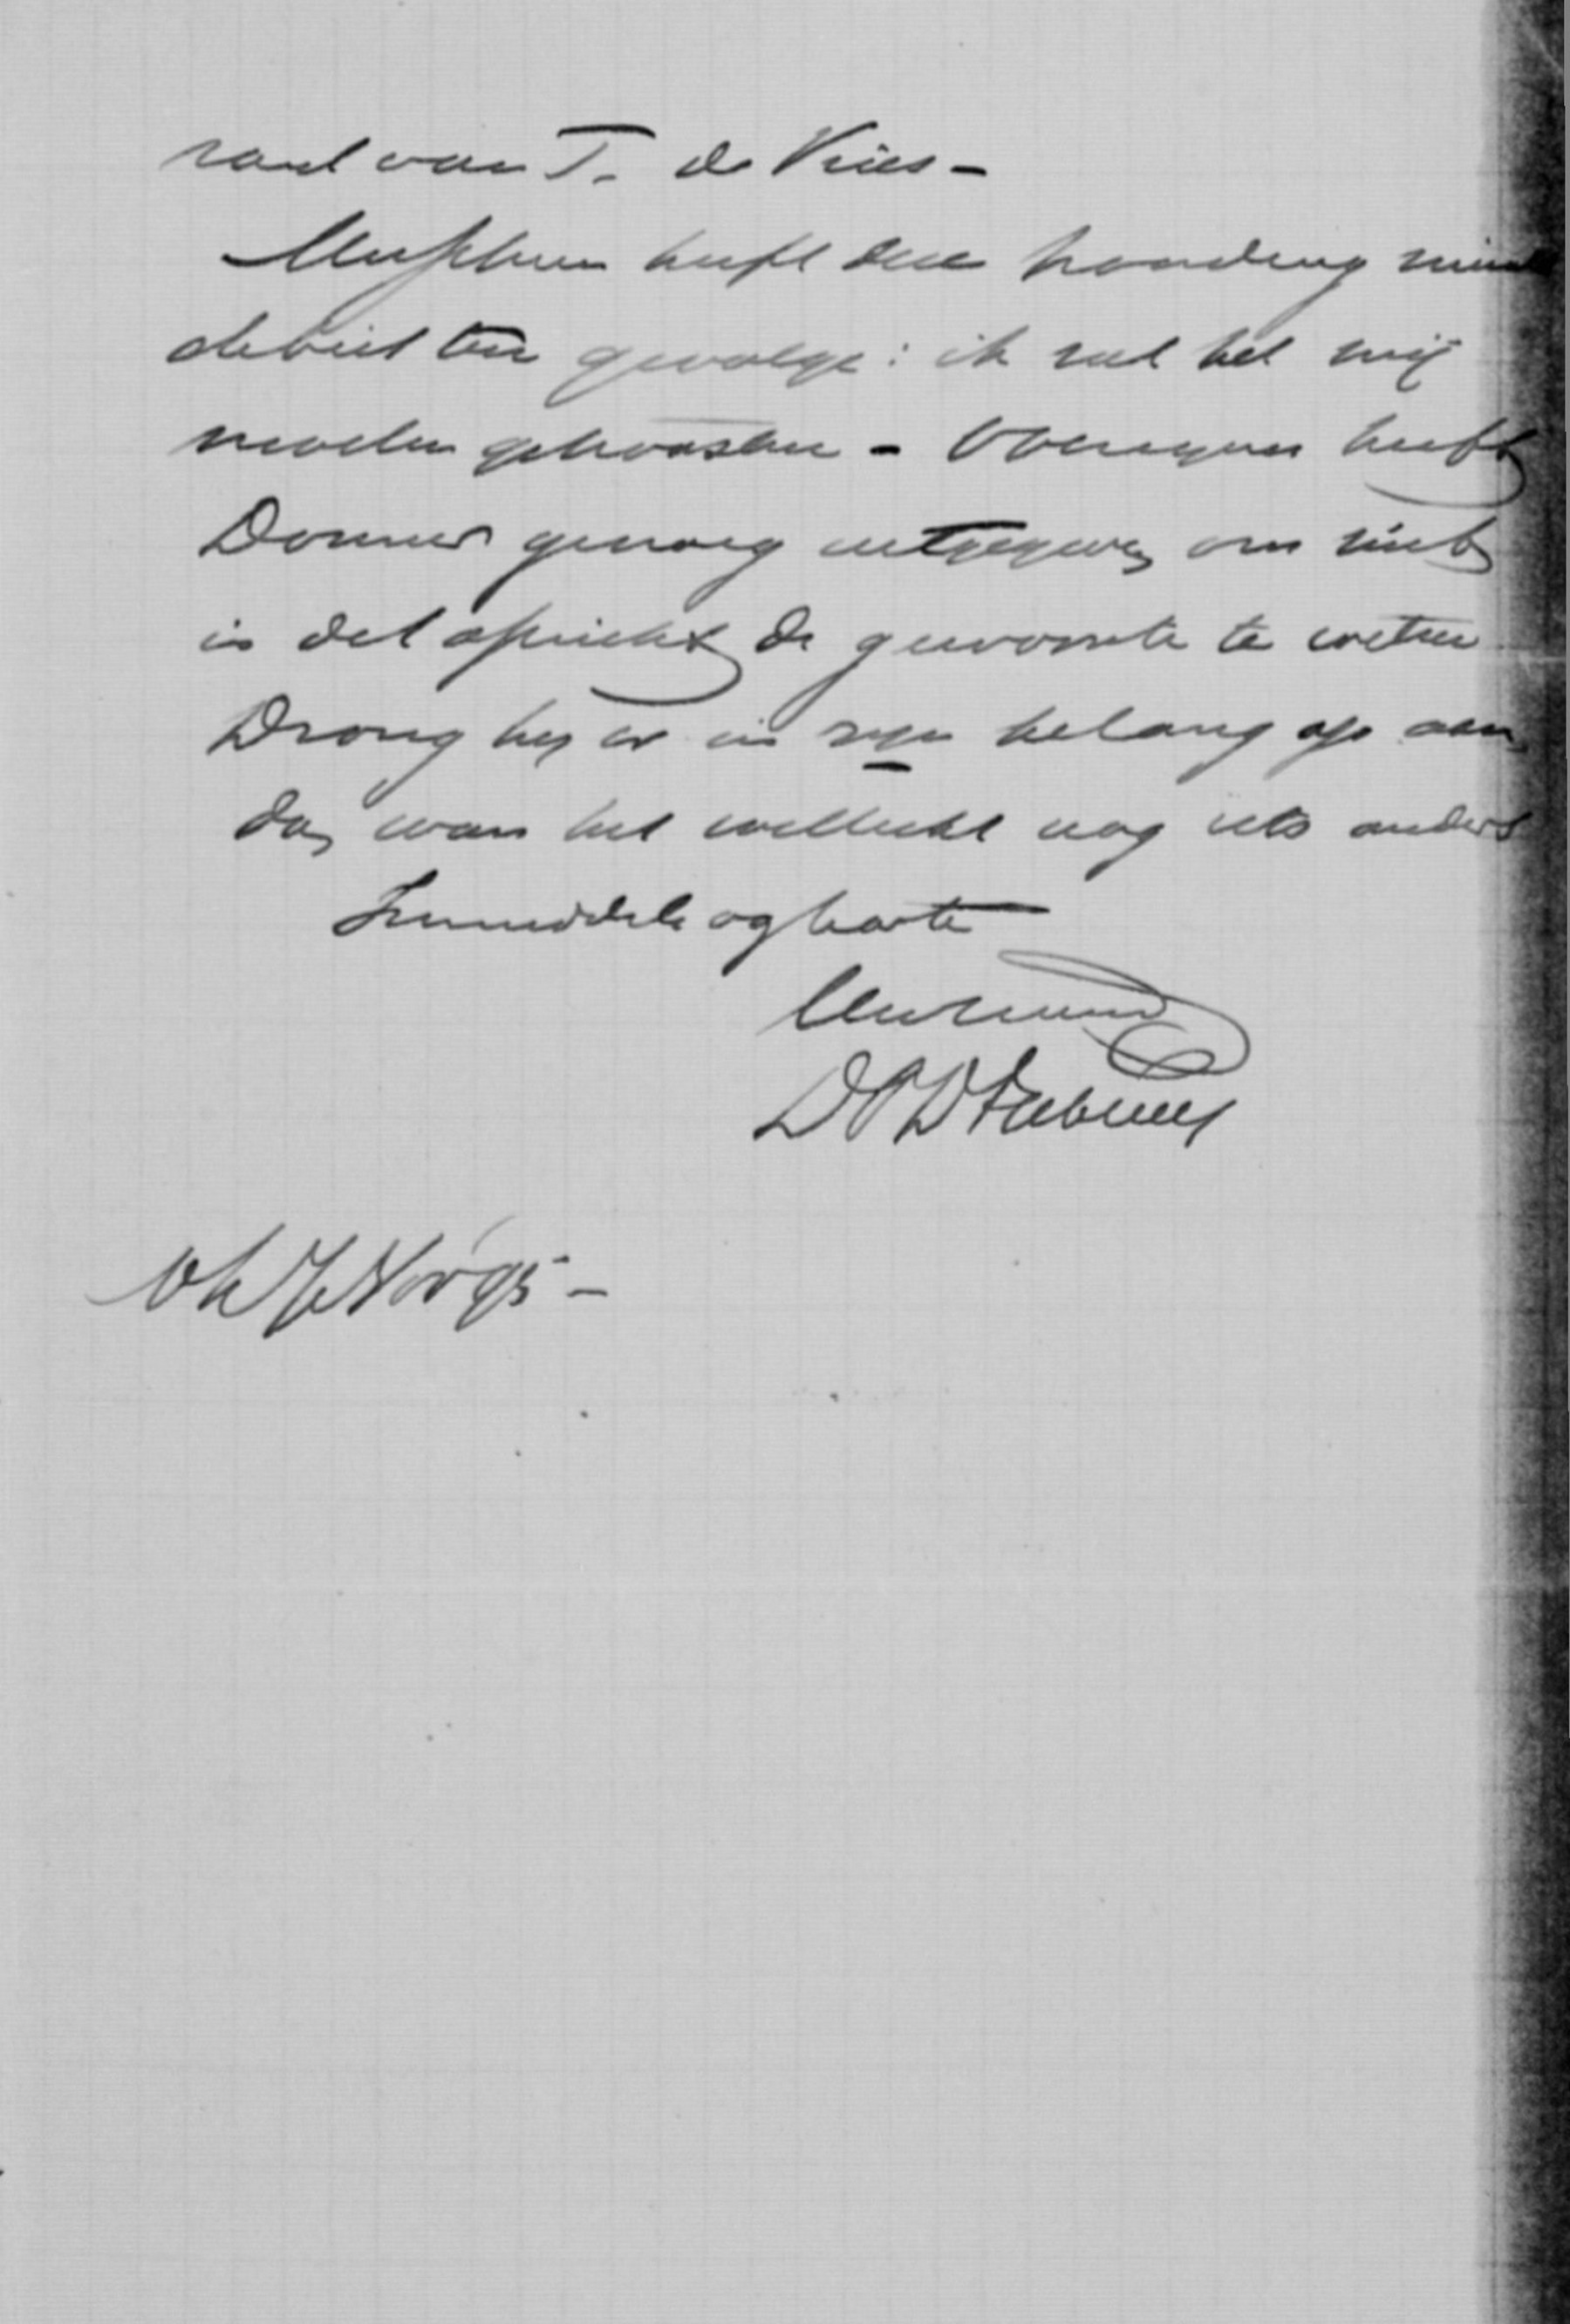 raad van T. de Vries -
Misschien heeft deze houding minder
debiet ten gevolge: ik zal het mij
moeten getroosten - Overigens heeft
Donner genoeg uitgegeven om niet
in dat opzicht de gewoonte te weten
Drong hij er in zijn belang op aan,
dan was het wellicht nog iets anders
Inmiddels hoogachtend
DPDFabius